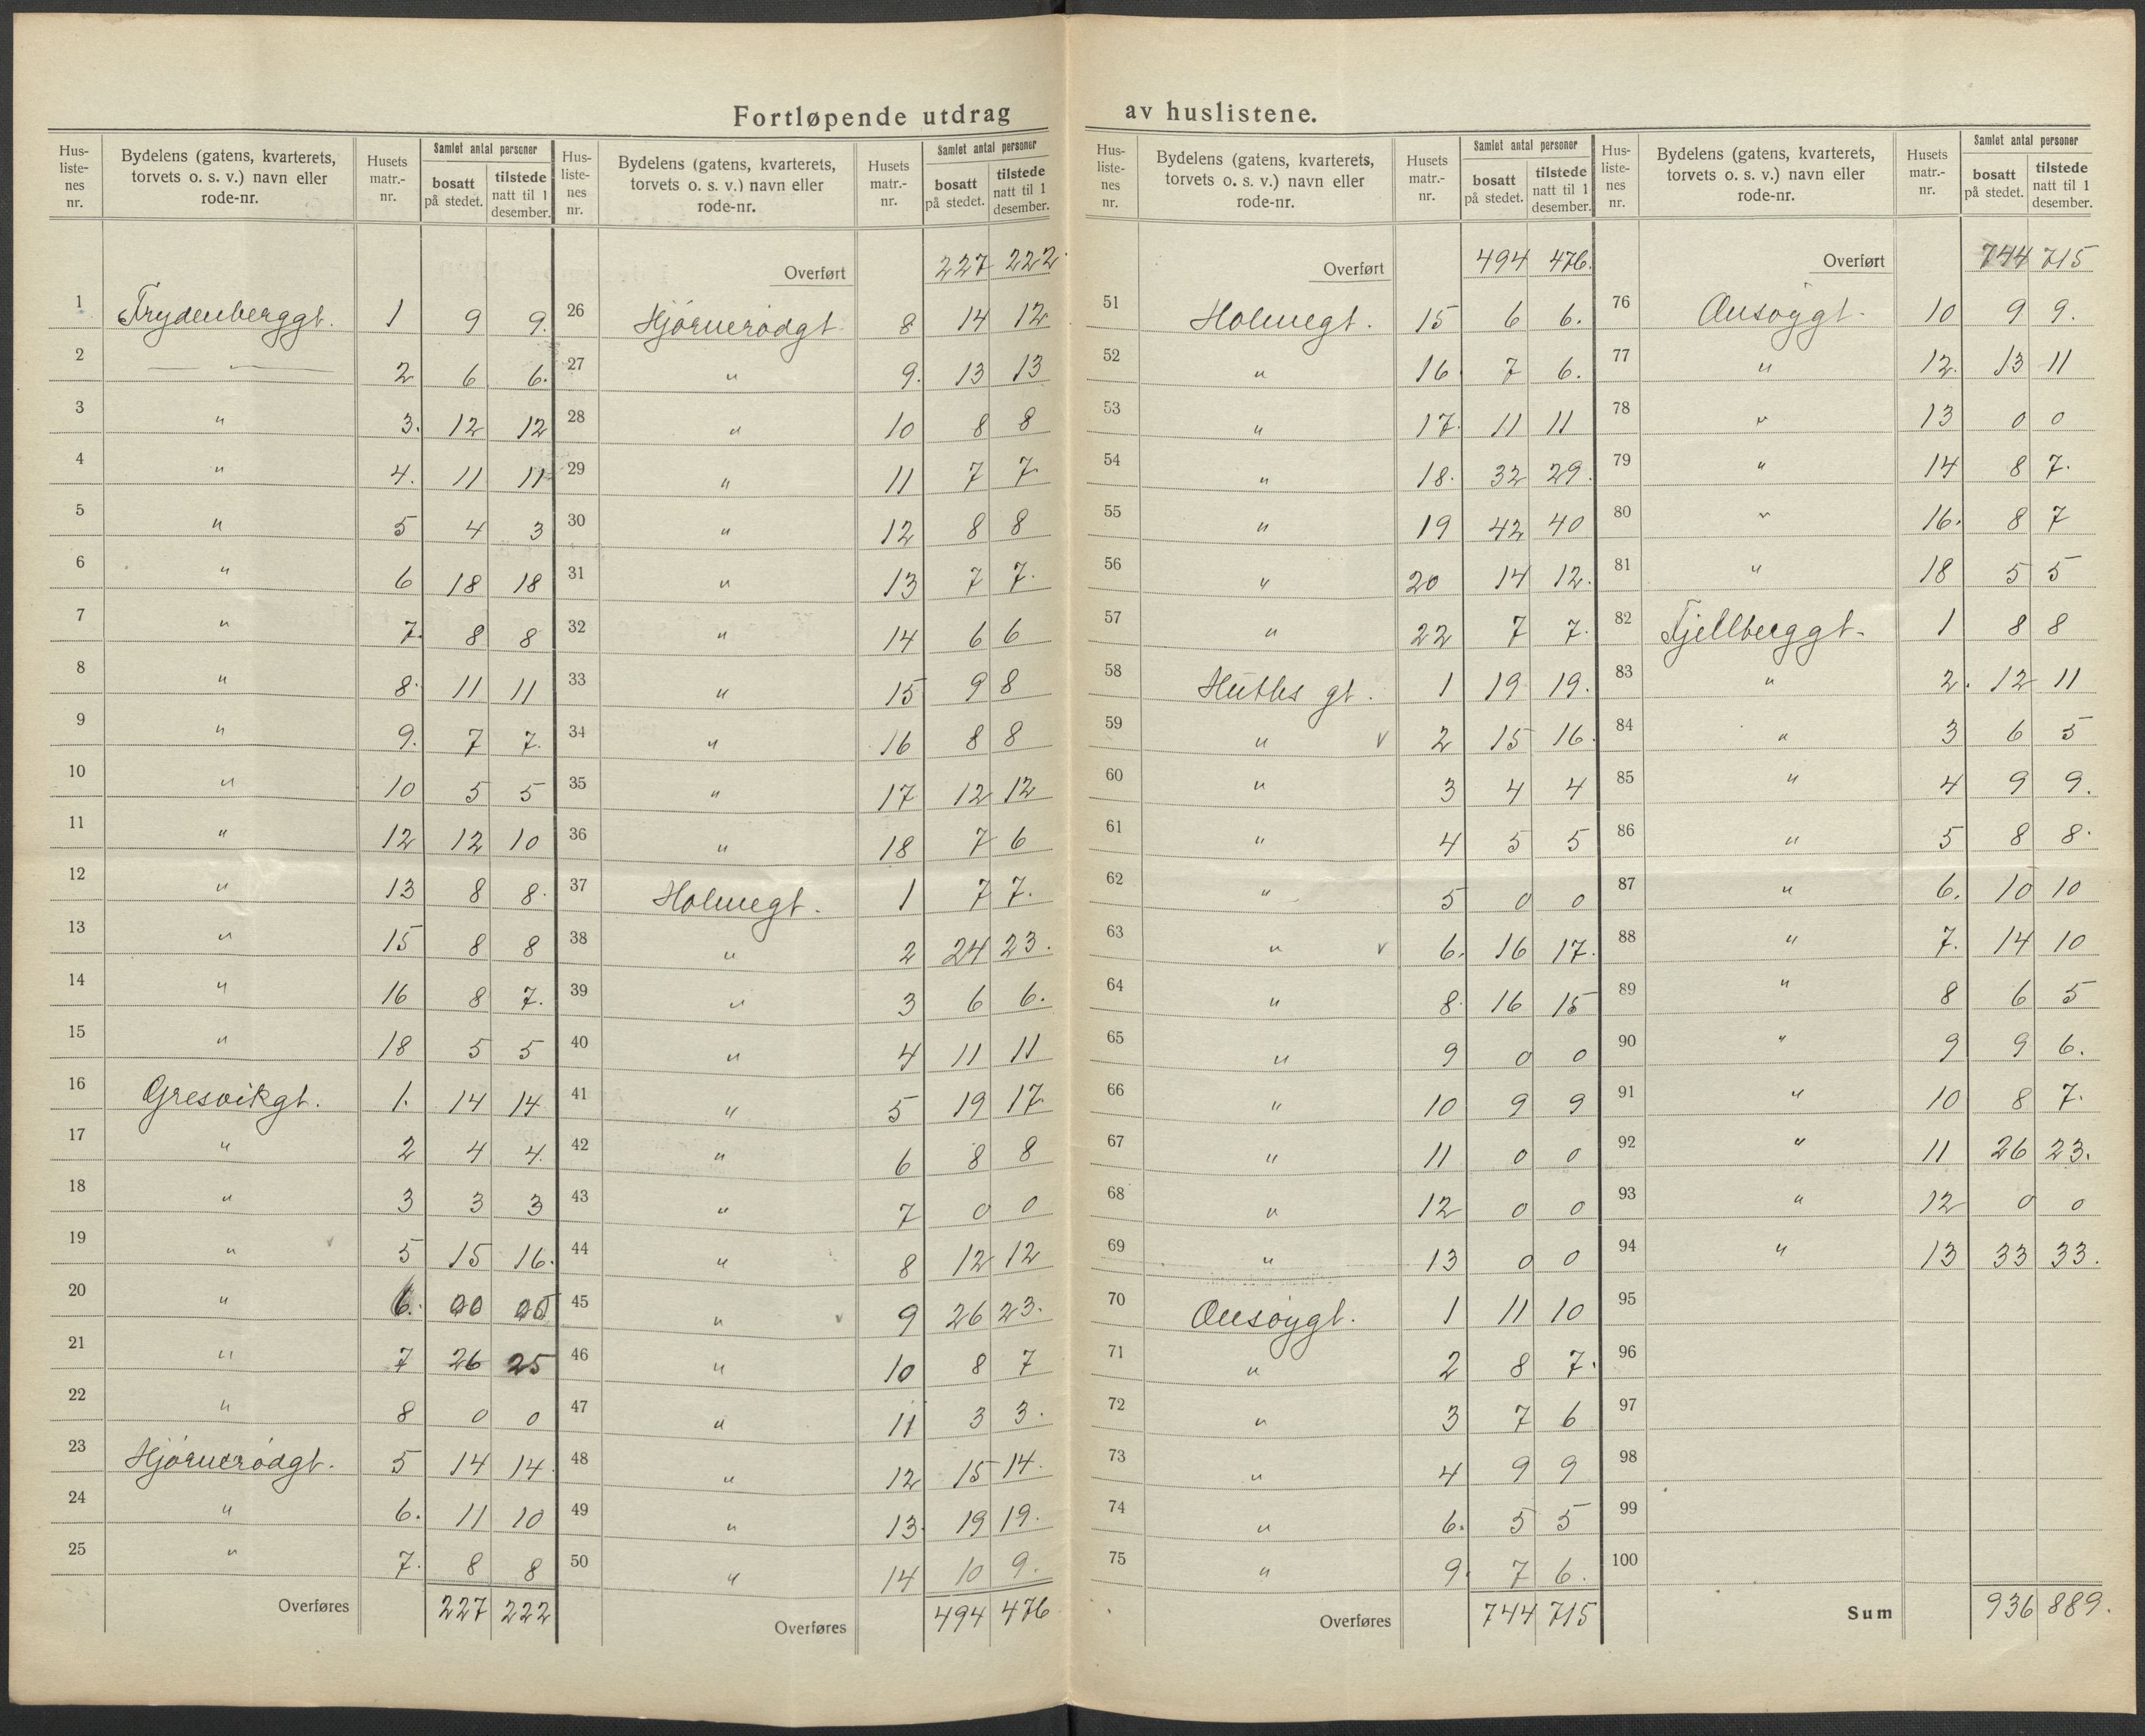 Fortløpende utdrag av huslistene.
Hus-liste-nes nr. | Bydelens (gatens, kvarterets, torvets o. s. v.) navn eller rode-nr. | Husets matr.-nr. | Samlet antal personer | bosatt på stedet. | tilstede natt til 1 desember.
1 Frydenberggt. 1 9 9.
2 — " — 2 6 6.
3 " 3. 12 12
4 " 4. 11 11
5 " 5 4 3
6 " 6 18 18
7 " 7. 8 8
8 " 8. 11 11
9 " 9. 7 7.
10 " 10 5 5
11 " 12 12 10
12 " 13 8 8.
13 " 15 8 8
14 " 16 8 7.
15 " 18 5 5
16 Gresvikgt. 1. 14 14
17 " 2 4 4.
18 " 3 3 3
19 " v 5 15 16.
20 " 6.
21 " 7 26 25
22 " 8 0 0
23 Hjørnerødgt. 5 14 14.
24 " 6. 11 10
25 " 7. 8 8
Overføres 227 222
Hus-liste-nes nr. | Bydelens (gatens, kvarterets, torvets o. s. v.) navn eller rode-nr. | Husets matr.-nr. | Samlet antal personer | bosatt på stedet. | tilstede natt til 1 desember.
Overført 227 222.
26 Hjørnerødgt 8 14 12
27 " 9. 13 13
28 " 10 8 8
29 " 11 7 7.
30 " 12 8 8
31 " 13 7 7.
32 " 14 6 6
33 " 15 9 8
34 " 16 8 8
35 " 17 12 12
36 " 18 7 6
37 Holmegt. 1 7 7.
38 " 2 24 23.
39 " 3 6 6.
40 " 4 11 11
41 " 5 19 17.
42 " 6 8 8
43 " 7 0 0
44 " 8 12 12
45 " v 9 26 23.
46 " 10 8 7
47 " 11 3 3.
48 " 12 15 14.
49 " 13. 19 19.
50 " 14 10 9.
Overføres 494 476
Hus-liste-nes nr. | Bydelens (gatens, kvarterets, torvets o. s. v.) navn eller rode-nr. | Husets matr.-nr. | Samlet antal personer | bosatt på stedet. | tilstede natt til 1 desember.
Overført 494 476.
51 Holmegt. 15 6 6.
52 " 16 7 6.
53 " 17. 11 11
54 " 18. 32 29.
55 " 19 42 40
56 " 20 14 12.
57 " 22 7 7.
58 Huths gt. 1 19 19.
59 " v 2 15 16
60 " 3 4 4
61 " 4 5 5
62 " 5 0 0
63 " v 6. 16 17.
64 " 8. 16 15
65 " 9 0 0
66 " 10 9 9
67 " 11 0 0
68 " 12 0 0
69 " 13 0 0
70 Onsøygt. 1 11 10
71 " 2 8 7.
72 " 3 7 6
73 " 4 9 9
74 " 6. 5 5
75 " 9. 7 6.
Overføres 744 715
Hus-liste-nes nr. | Bydelens (gatens, kvarterets, torvets o. s. v.) navn eller rode-nr. | Husets matr.-nr. | Samlet antal personer | bosatt på stedet. | tilstede natt til 1 desember.
Overført 744 715
76 Onsøygt. 10 9 9.
77 " 12. 13 11
78 " 13 0 0
79 " 14 8 7.
80 " 16. 8 7
81 " 18 5 5
82 Fjellberggt. 1 8 8
83 " 2. 12 11
84 " 3 6 5
85 " 4 9 9.
86 " 5 8 8.
87 " 6. 10 10
88 " 7. 14 10
89 " 8 6 5
90 " 9 9 6.
91 " 10 8 7.
92 " 11 26 23.
93 " 12 0 0
94 " 13 33 33.
95
96
97
98
99
100
Sum 936 889.